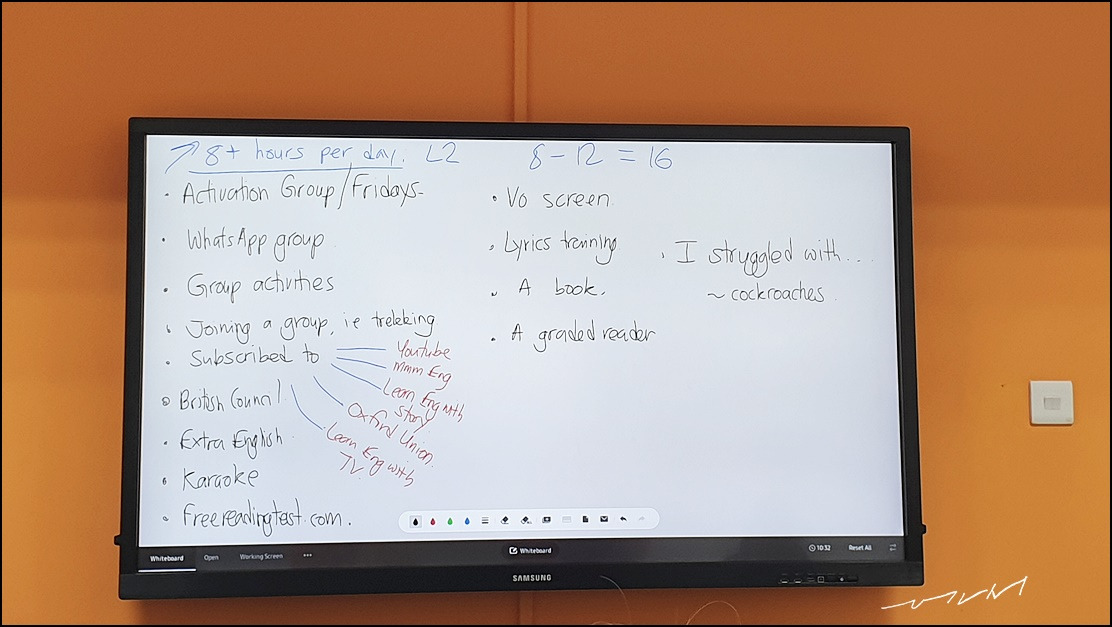 8+ hours per day. L2
8 - 12 = 16
• Activation Group/Fridays
• WhatsApp group
• Group activities
• Joining a group, ie trekking
• Subscribed to
Youtube
mmm Eng
Learn Eng with
Story
Oxford Union
Learn Eng with
TV
• British Council
• Extra English
• Karaoke
• Freereadingtest.com.
• Vo screen
• Lyrics training
• A book.
• A graded reader
• I struggled with...
~ cockroaches
Whiteboard
Open
Working Screen
Whiteboard
10:32
Reset All
SAMSUNG